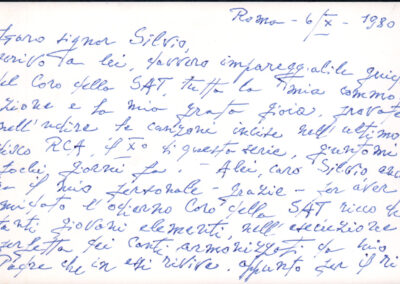 Roma - 6/X - 1980
Caro signor Silvio,
scrivo a lei, davvero impareggiabile guida
del Coro della SAT, tutta la mia commo
zione e la mia grata gioia, provate
nell'udire le canzoni incise nell'ultimo
disco RCA, il X° di questa serie, giuntomi
pochi giorni fa. - A lei, caro Silvio,
va il mio personale - grazie - per aver
guidato l'odierno Coro della SAT ricco di
tanti giovani elementi nell'esecuzione
perfetta dei canti armonizzati da mio
Padre che in essi rivive, appunto per il ri